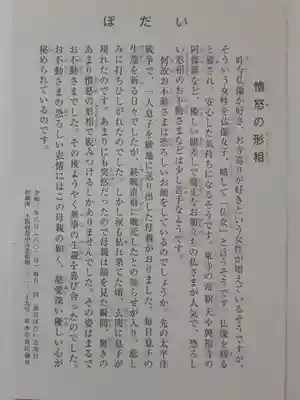 ぼだい
憤怒の形相
昨今仏像が好き、お寺巡りが好きという女性が増えているそうですが、
そういう女性を仏像女子、略して「仏女」と言うそうです。仏像を観る
と癒され、安心した気持ちになるそうです。東寺の帝釈天や興福寺の
阿修羅など、優しい眼差しで端正なお顔立ちの仏さまが人気で、恐ろし
い形相のお不動さまなどは少し苦手なようです。
何故お不動さまは恐ろしいお顔をしているのでしょうか。先の太平洋
戦争で、一人息子を戦地に送り出した母親がおりました。毎日息子の
生還を祈る日々でしたが、終戦直前に戦死したとの知らせが入り、悲し
みに打ちひしがれのでした。しかし涙も枯れ果てた頃、玄関に息子が
現れたのです。あまりにも突然だったので母親は顔を見た瞬間、驚きの
あまり憤怒の形相で睨みつけるしかありませんでした。その姿はまるで
お不動さまでした。その後ようやく無事の生還を喜び合ったのでした。
お不動さまの恐ろしい表情にはこの母親の如く、慈愛深い優しい心が
秘められているのです。